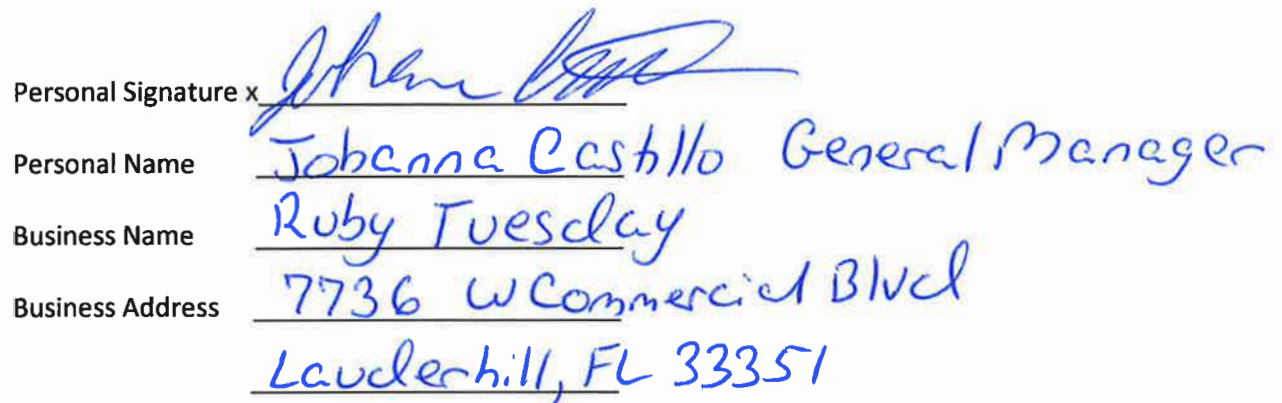 Personal Signature x
Personal Name Johanna Castillo General Manager
Business Name Ruby Tuesday
Business Address 7736 W Commercial Blvd
Lauderhill, FL 33351